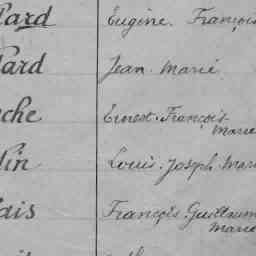 Pard Eugène. François
Pard Jean. Marie
che Ernest. François.
Marie
lin Louis. Joseph. Mari
lais François. Guillaum
Marie